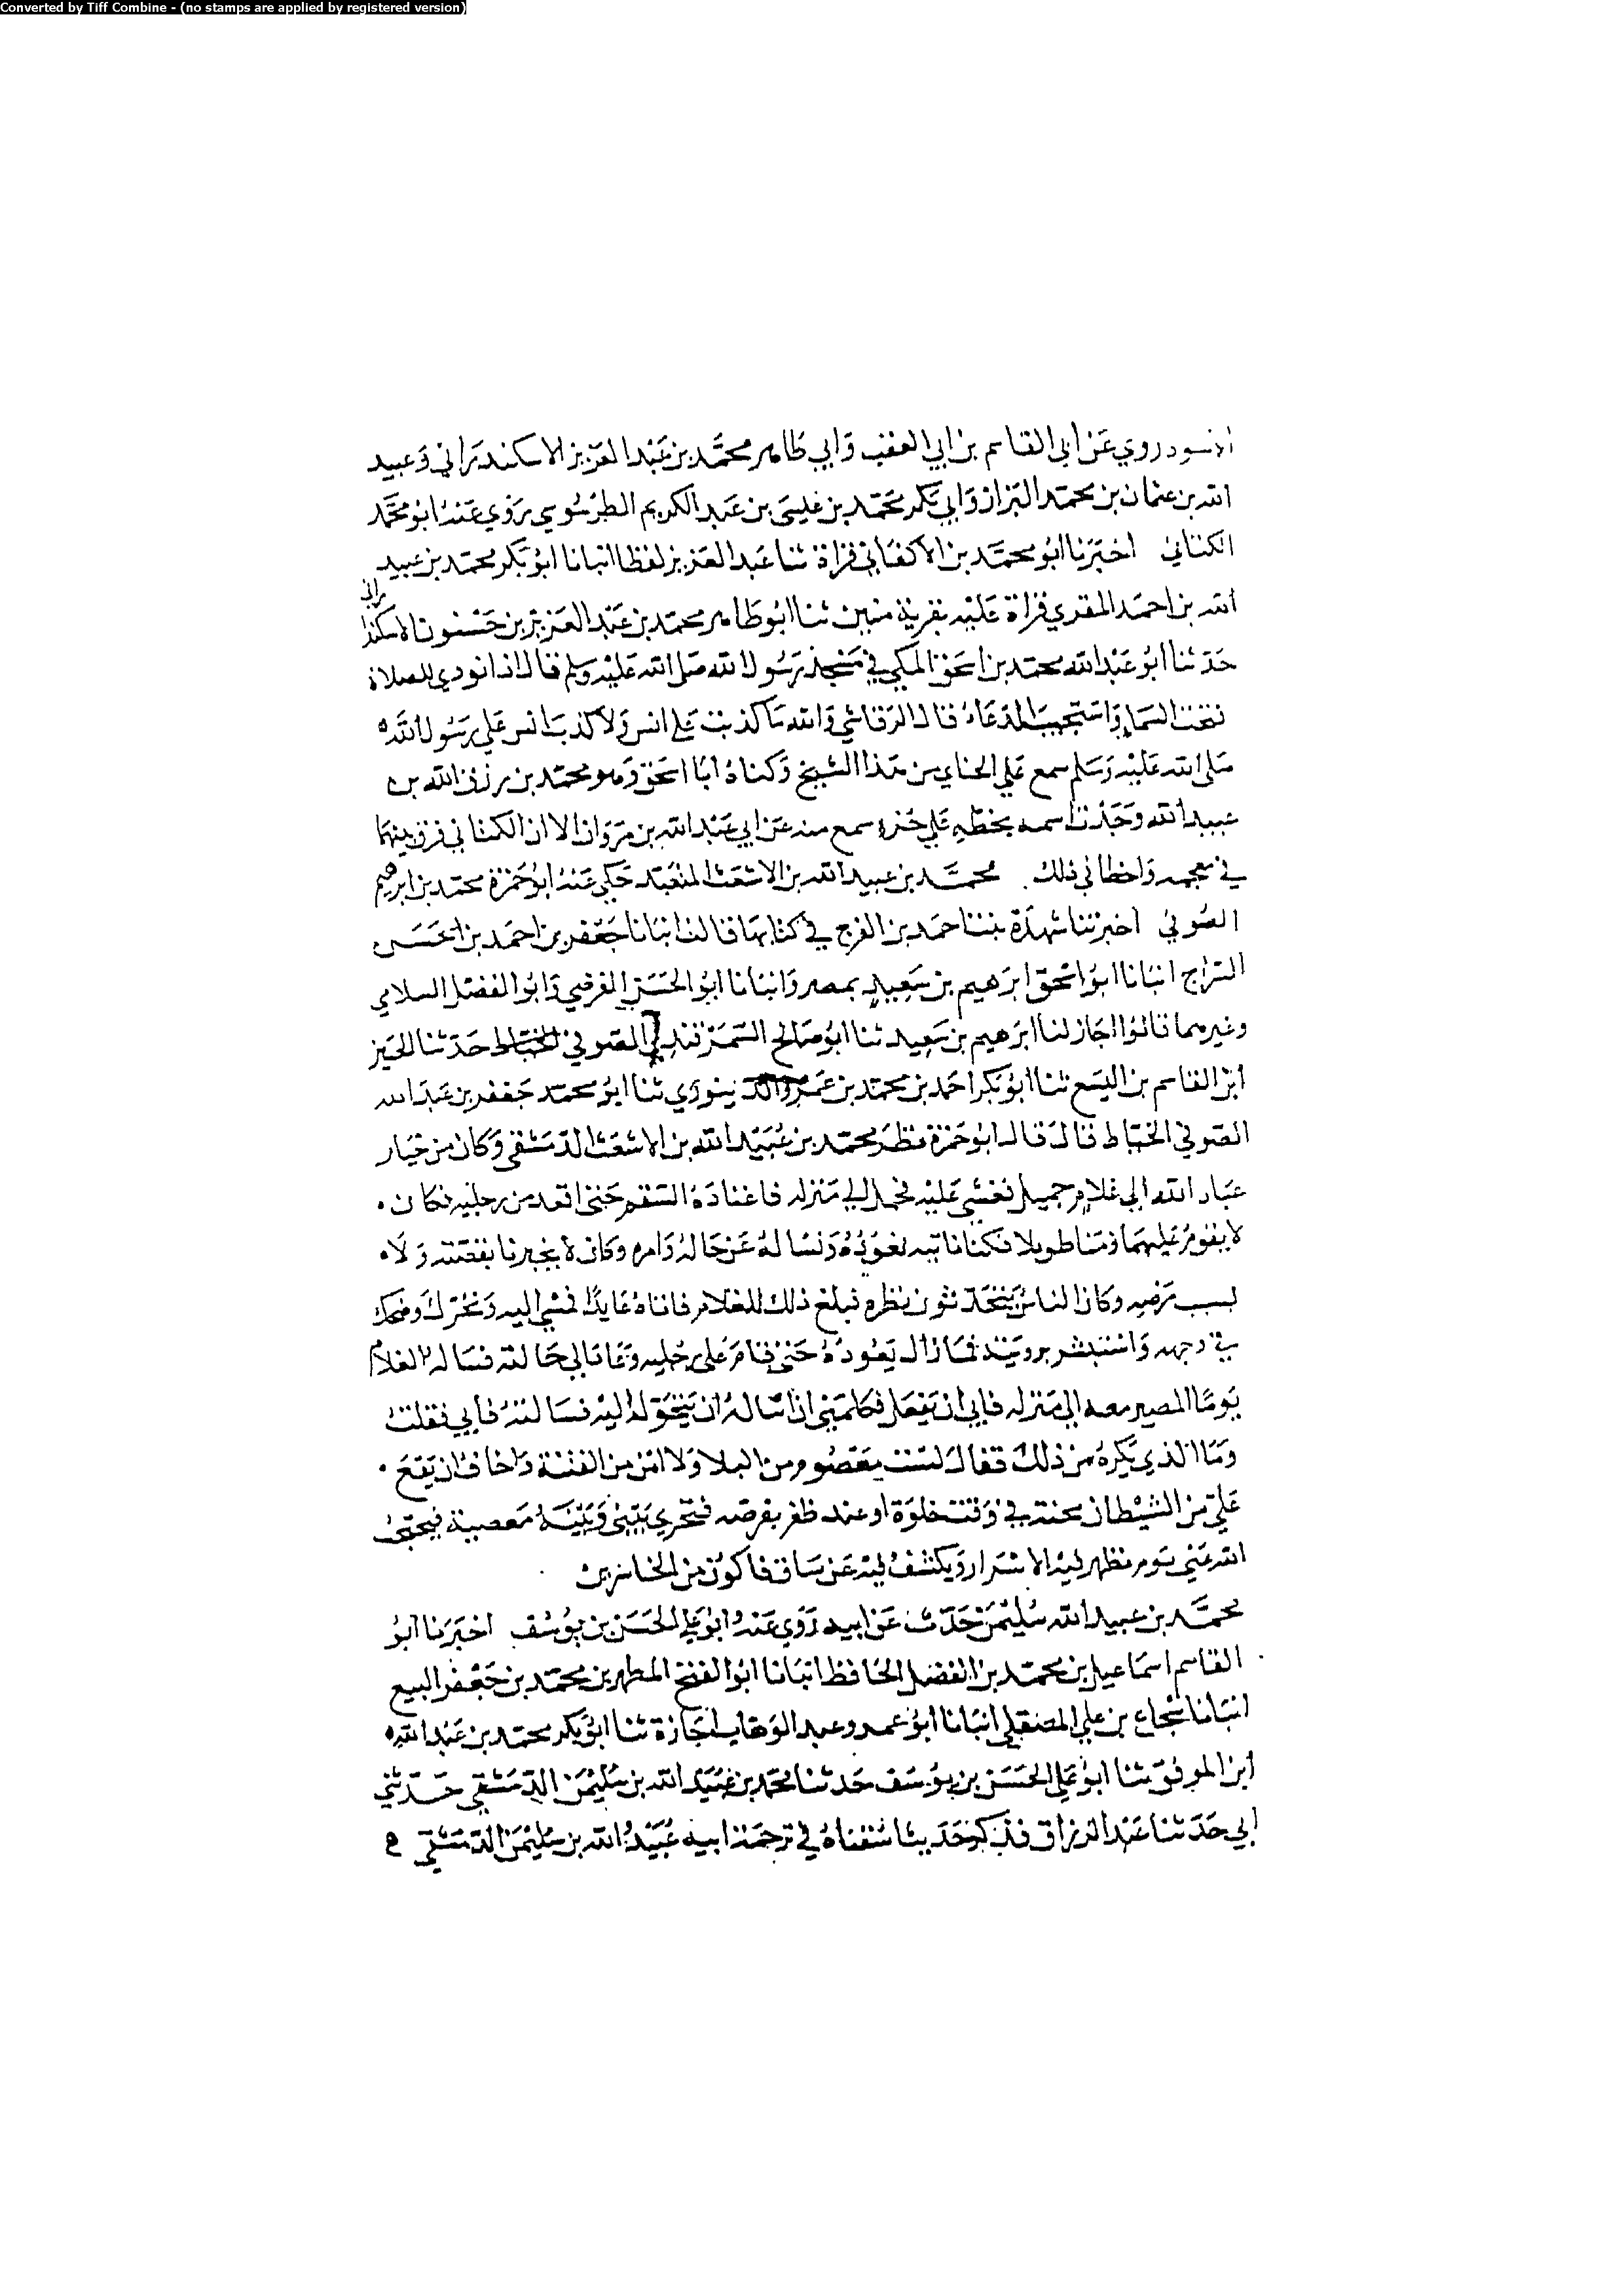 Converted by Tiff Combine - (no stamps are applied by registered version)
الاسود روي عن ابي القاسم بن ابي العقب وابي طاهر محمد بن عبد العزيز الاسكندراني وعبيد
الله بن عثمان بن محمد البزاز وابي بكر محمد بن عليسى بن عبد الكريم الطرسوسي روي عنه ابو محمد
الكتاني اخبرنا ابو محمد بن الاكفاني قراة ثنا عبد العزيز لفظا انبانا ابو بكر محمد بن عبيد
الله بن احمد المقري قراة عليه بقرية منين ثنا ابو طاهر محمد بن عبد العزيز بن حسنون الاسكندراني
حدثنا ابو عبد الله محمد بن اسحق المكي في مسجد رسول الله صلى الله عليه وسلم قال اذا نودي للصلاة
فتحت السماء واستجيب الدعاء قال الرقاشي والله ما كذبت على انس ولا كذب انس علي رسول الله
صلى الله عليه وسلم سمع علي الحناي من هذا الشيخ وكناه ابا اسحق وهو محمد بن رزق الله بن
عبيد الله وجدت اسمه بخطه علي جزء سمع منه عن ابي عبد الله بن مروان الا ان الكتاني فرق بينهما
في معجمه واخطا في ذلك محمد بن عبيد الله بن الاشعث المتعبد حكي عنه ابو حمزة محمد بن ابرهيم
الصوفي اخبرتنا شهدة بنت احمد بن الفرج في كتابها قالت انبانا جعفر بن احمد بن الحسن
السراج انبانا ابو اسحق ابرهيم بن سعيد بمصر وانبانا ابو الحسن الفرضي وابو الفضل السلامي
وغيرهما قالوا اجاز لنا ابرهيم بن سعيد ثنا ابو صالح السمرقندي الصوفي حدثنا الحسين
ابن القاسم بن اليسع ثنا ابو بكر احمد بن محمد بن عمرو الدينوري ثنا ابو محمد جعفر بن عبد الله
الصوفي الخياط قال قال ابو حمزة نظر محمد بن عبيد الله بن الاشعث الدمشقي وكان من خيار
عباد الله الى غلام جميل فغشي عليه فحمل الي منزله فاعتاده السقم حتى اقعد من رجليه فكان
لا يقوم عليهما زمنا طويلا فكنا ناتيه نعوده ونساله عن حاله وامره وكان لا يخبرنا بقصته ولا
بسبب مرضه وكان الناس يتحدثون بنظره فبلغ ذلك الغلام فاتاه عايدا فهش اليه وتحرك وضحك
في وجهه واستبشر برويته فما زال يعوده حتى قام على رجليه وعاد الي حالته فساله الغلام
يوما المصير معه الي منزله فابى ان يفعل فكلمني ان اساله ان يتحول اليه فسالته فابي فقلت
وما الذي يكره من ذلك فقال لست بمعصوم من البلا ولا امن من الفتنة واخاف ان يقع
علي من الشيطان محنة في وقت خلوة او عند ظفر بفرصة فتجري بيني وبينه معصية فيحتجب
الله عني يوم تظهر فيه الاسرار ويكشف فيه عن ساق فاكون من الخاسرين
محمد بن عبيد الله سليمن حدث عن ابيه روي عنه ابو علي الحسن بن يوسف اخبرنا ابو
القاسم اسماعيل بن محمد بن الفضل الحافظ انبانا ابو الفتح المطهر بن محمد بن جعفر البيع
انبانا شجاع بن علي المصقلي انبانا ابو عمرو عبد الوهاب اجازة ثنا ابو بكر محمد بن عبد الله
ابن الموفق ثنا ابو علي الحسن بن يوسف حدثنا محمد بن عبيد الله بن سليمن الدمشقي حدثني
ابي حدثنا عبد الرزاق فذكر حديثا سقناه في ترجمة ابيه عبيد الله بن سليمن الدمشقي